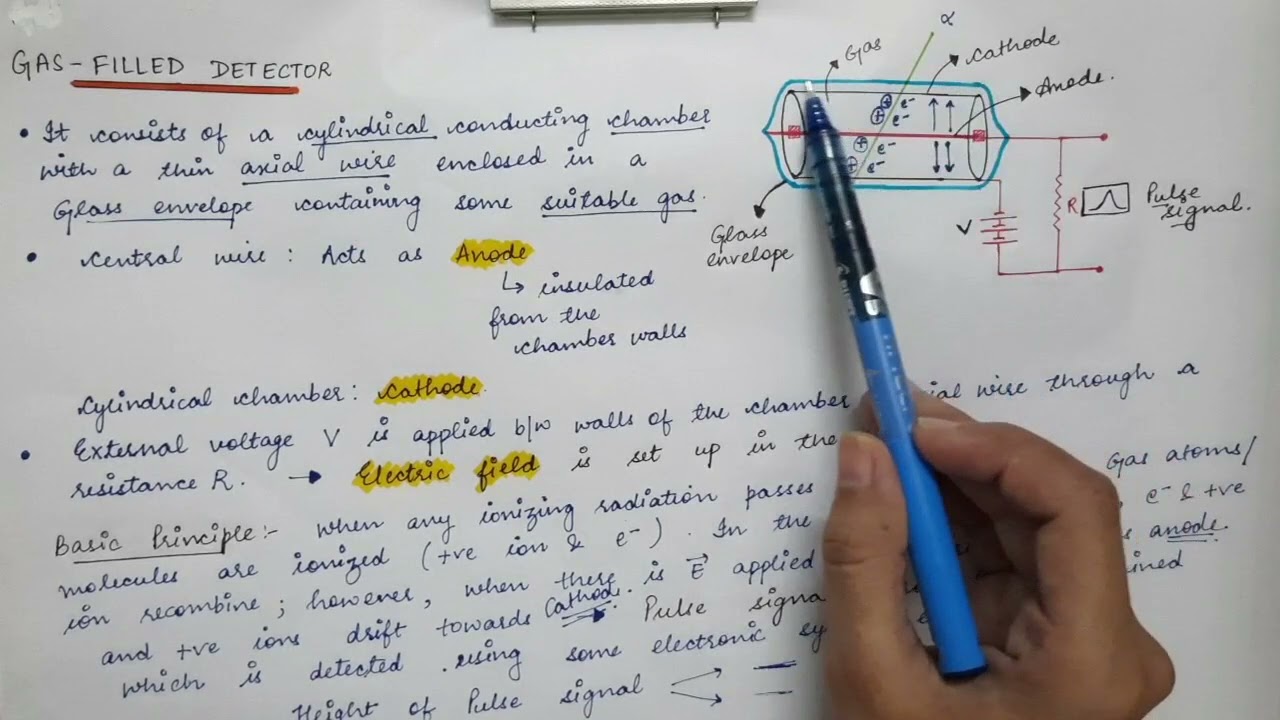 GAS-FILLED DETECTOR
• It consists of a cylindrical conducting chamber
with a thin axial wire enclosed in a
Glass envelope containing some suitable gas.
• Central wire: Acts as Anode
↳ insulated
from the
chamber walls
Cylindrical chamber: Cathode.
• External voltage V is applied b/w walls of the chamber wire through a
resistance R. → Electric field is set up in the
Basic Principle:- When any ionizing radiation passes Gas atoms/
molecules are ionized (+ve ion & e⁻). In the e⁻ & +ve
ion recombine; however, when there is E⃗ applied anode.
and +ve ions drift towards Cathode. Pulse
which is detected using some electronic
Height of Pulse signal
α
Gas
Cathode
Anode.
⊕ e⁻
⊕ e⁻
⊕ e⁻
⊕ e⁻
Glass
envelope
V
R
Pulse
signal.